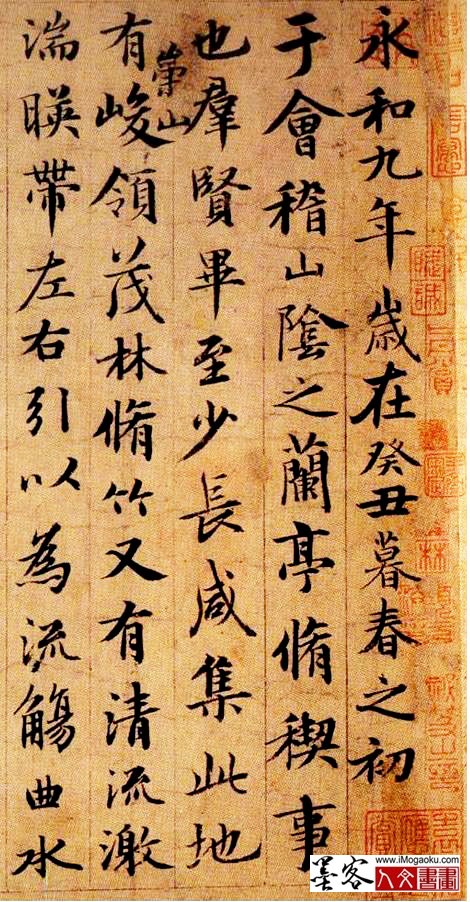 永和九年歲在癸丑暮春之初
于會稽山陰之蘭亭脩稧事
也羣賢畢至少長咸集此地
崇山
有峻領茂林脩竹又有清流激
湍暎帶左右引以為流觴曲水
www.iMogaoku.com
墨客 人文書畫